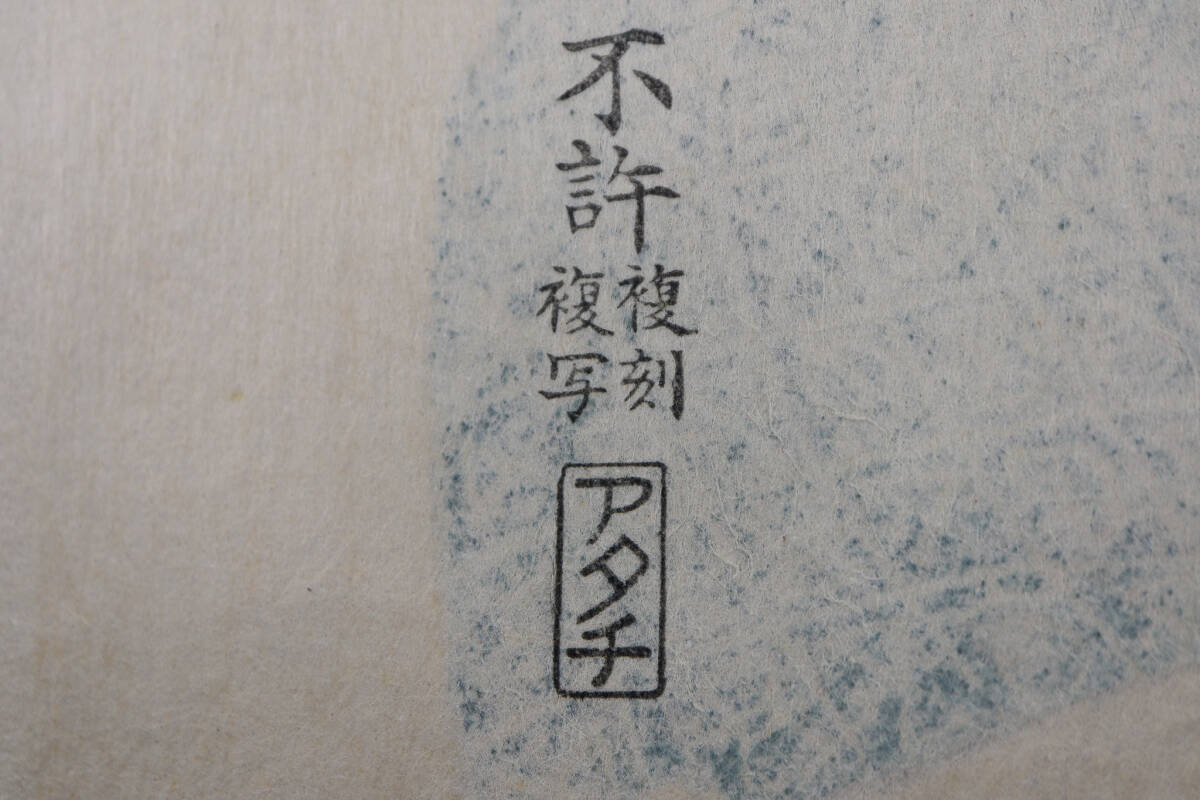 不許
複刻
複写
アタチ